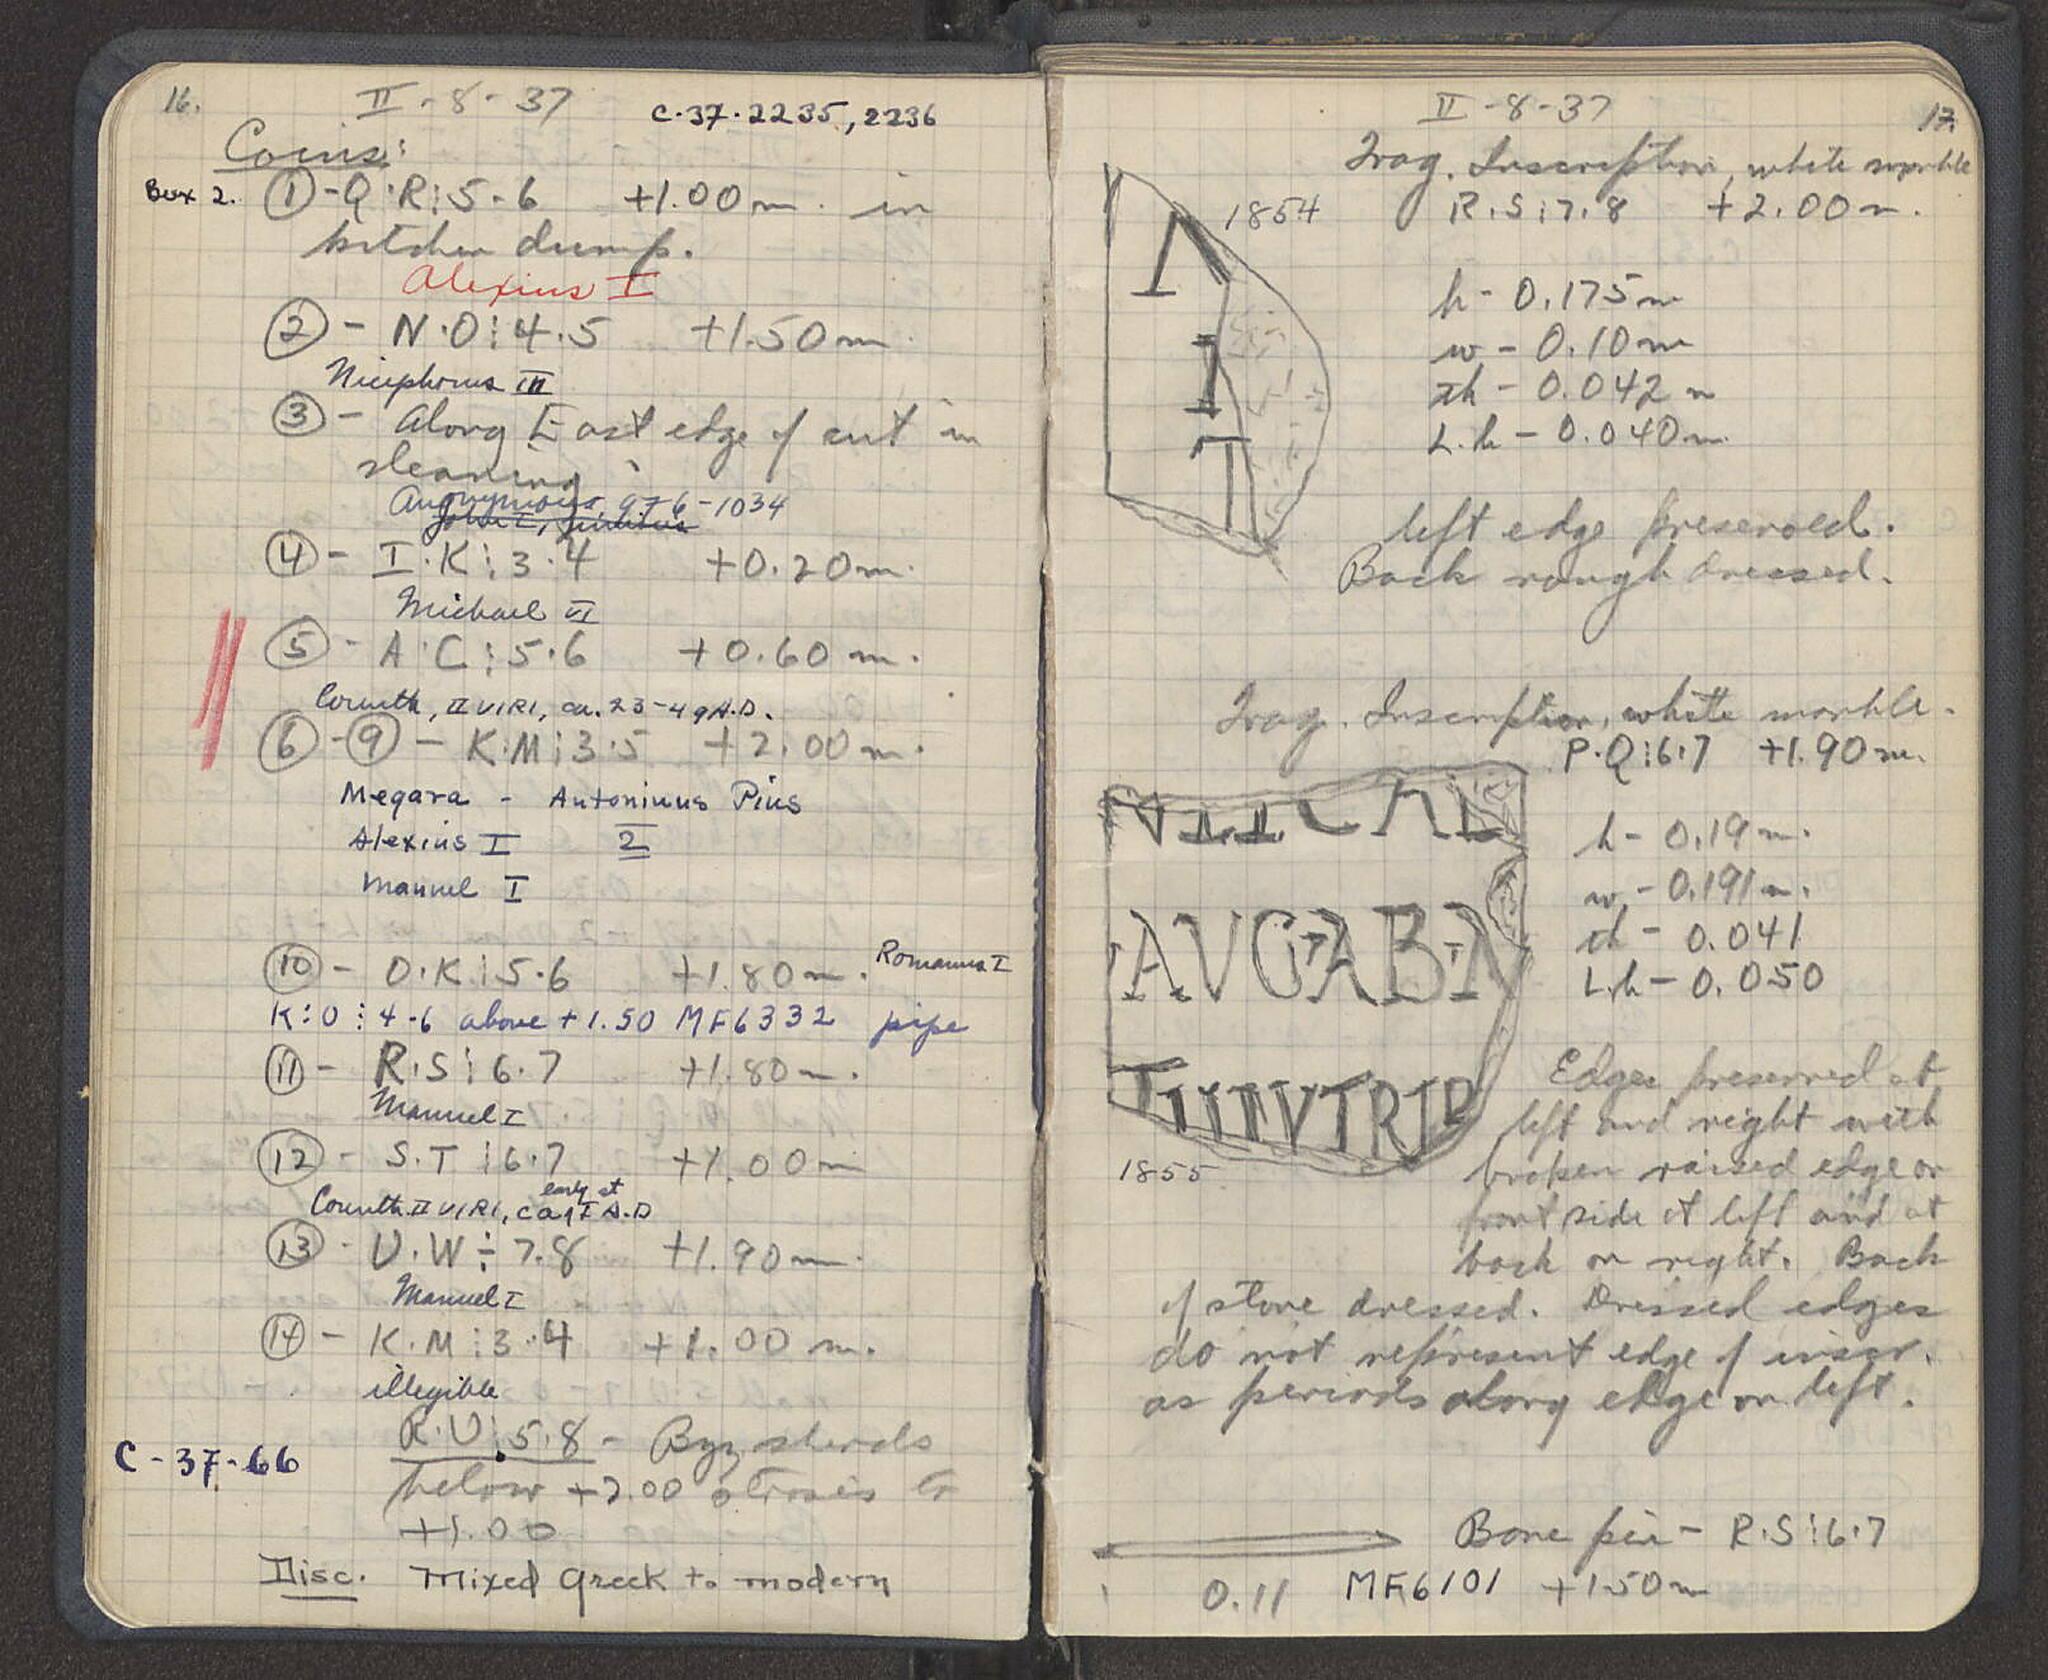 16.
II-8-37
C-37-2235, 2236
Coins:
Box 2. ① - Q·R⋮5-6 +1.00m. in
kitchen dump.
Alexius I
② - N·O⋮4·5 +1.50m.
Nicephorus III
③ - Along East edge of cut in
cleaning
Anonymous, 976-1034
John I,
④ - I·K⋮3·4 +0.20m.
Michael VI
⑤ - A·C⋮5·6 +0.60m.
Corinth, II VIRI, ca. 23-49 A.D.
⑥-⑨ - K·M⋮3·5 +2.00m.
Megara - Antoninus Pius
Alexius I 2
Manuel I
⑩ - O·K⋮5·6 +1.80m. Romanus I
K:O⋮4-6 above +1.50 MF6332 pipe
⑪ - R·S⋮6·7 +1.80m.
Manuel I
⑫ - S·T⋮6·7 +1.00m
early st
Corinth II VIRI, ca I A.D
⑬ - U·W⋮7·8 +1.90m.
Manuel I
⑭ - K·M⋮3·4 +1.00m.
illegible
C-37-66
R·U⋮5·8 - Byz sherds
below +2.00 to
+1.00
Disc. Mixed Greek to modern
II-8-37
17.
Frag. Inscription, white marble
R·S⋮7·8 +2.00m.
1854
Λ
I
T
h - 0.175m
w - 0.10m
th - 0.042m
L.h - 0.040m.
left edge preserved.
Back rough dressed.
Frag. Inscription, white marble.
P·Q⋮6·7 +1.90m.
AVG·AB·N
TIIIIVTRIP
1855
h - 0.19m.
w - 0.191m.
th - 0.041
L.h - 0.050
Edges preserved at
left and right with
broken raised edge on
front side at left and at
back on right. Back
of stone dressed. Dressed edges
do not represent edge of inscr.
as periods along edge on left.
Bone pin - R·S⋮6·7
0.11 MF6101 +1.50m